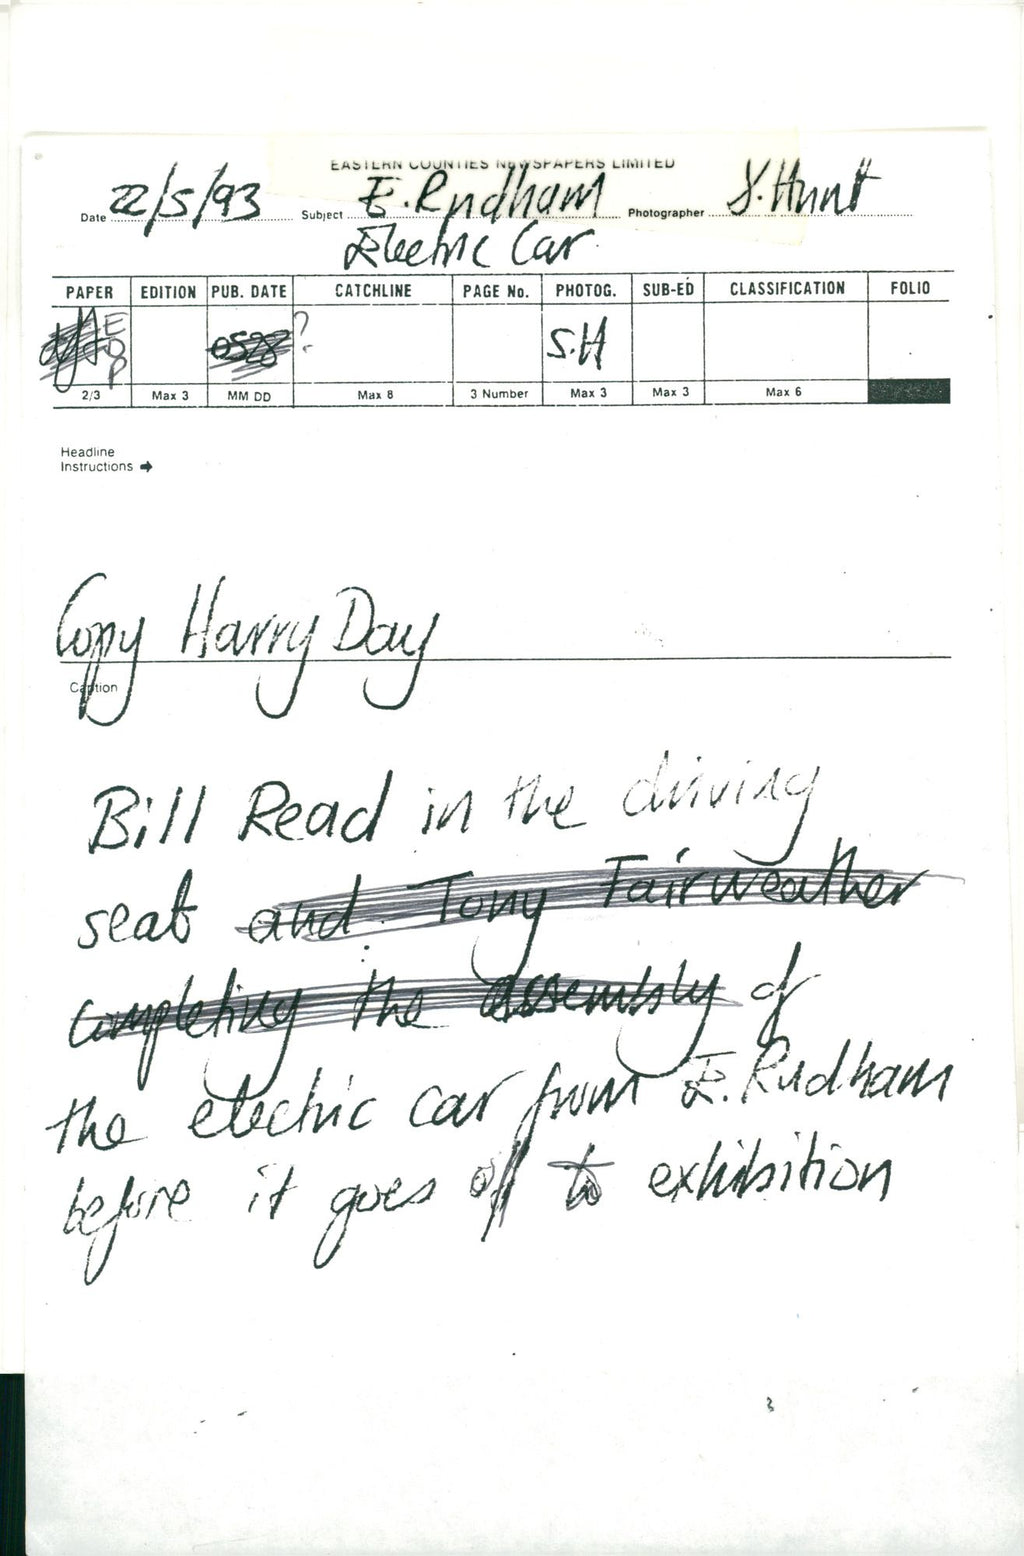 EASTERN COUNTIES NEWSPAPERS LIMITED
Date 22/5/93 Subject E. Rudham Photographer S. Hunt
Electric Car
PAPER EDITION PUB. DATE CATCHLINE PAGE No. PHOTOG. SUB-ED CLASSIFICATION FOLIO
EDP 0528 ? S.H
2/3 Max 3 MM DD Max 8 3 Number Max 3 Max 3 Max 6
Headline
Instructions ➔
Copy Harry Day
Caption
Bill Read in the driving
seat and Tony Fairweather
completing the assembly of
the electric car from E. Rudham
before it goes off to exhibition